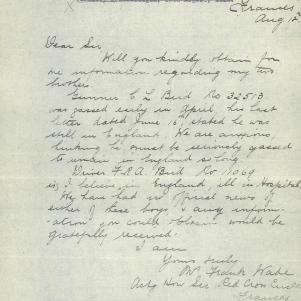 Frances
Aug 12
Dear Sir
Will you kindly obtain for
me information regarding my two
brothers.
Gunner C L Bird No 32513
was gassed early in April, his last
letter dated June 16th, stated he was
still in England. We are anxious,
thinking he must be seriously gassed
to remain in England so long.
Driver F. R. A. Bird No
is, I believe in England, ill in Hospital
We have had no official news of
either of these boys & any inform-
ation you could obtain would be
gratefully received.
I am
Yours truly
Frank Wade
Hon Sec Red Cross Circle
Frances